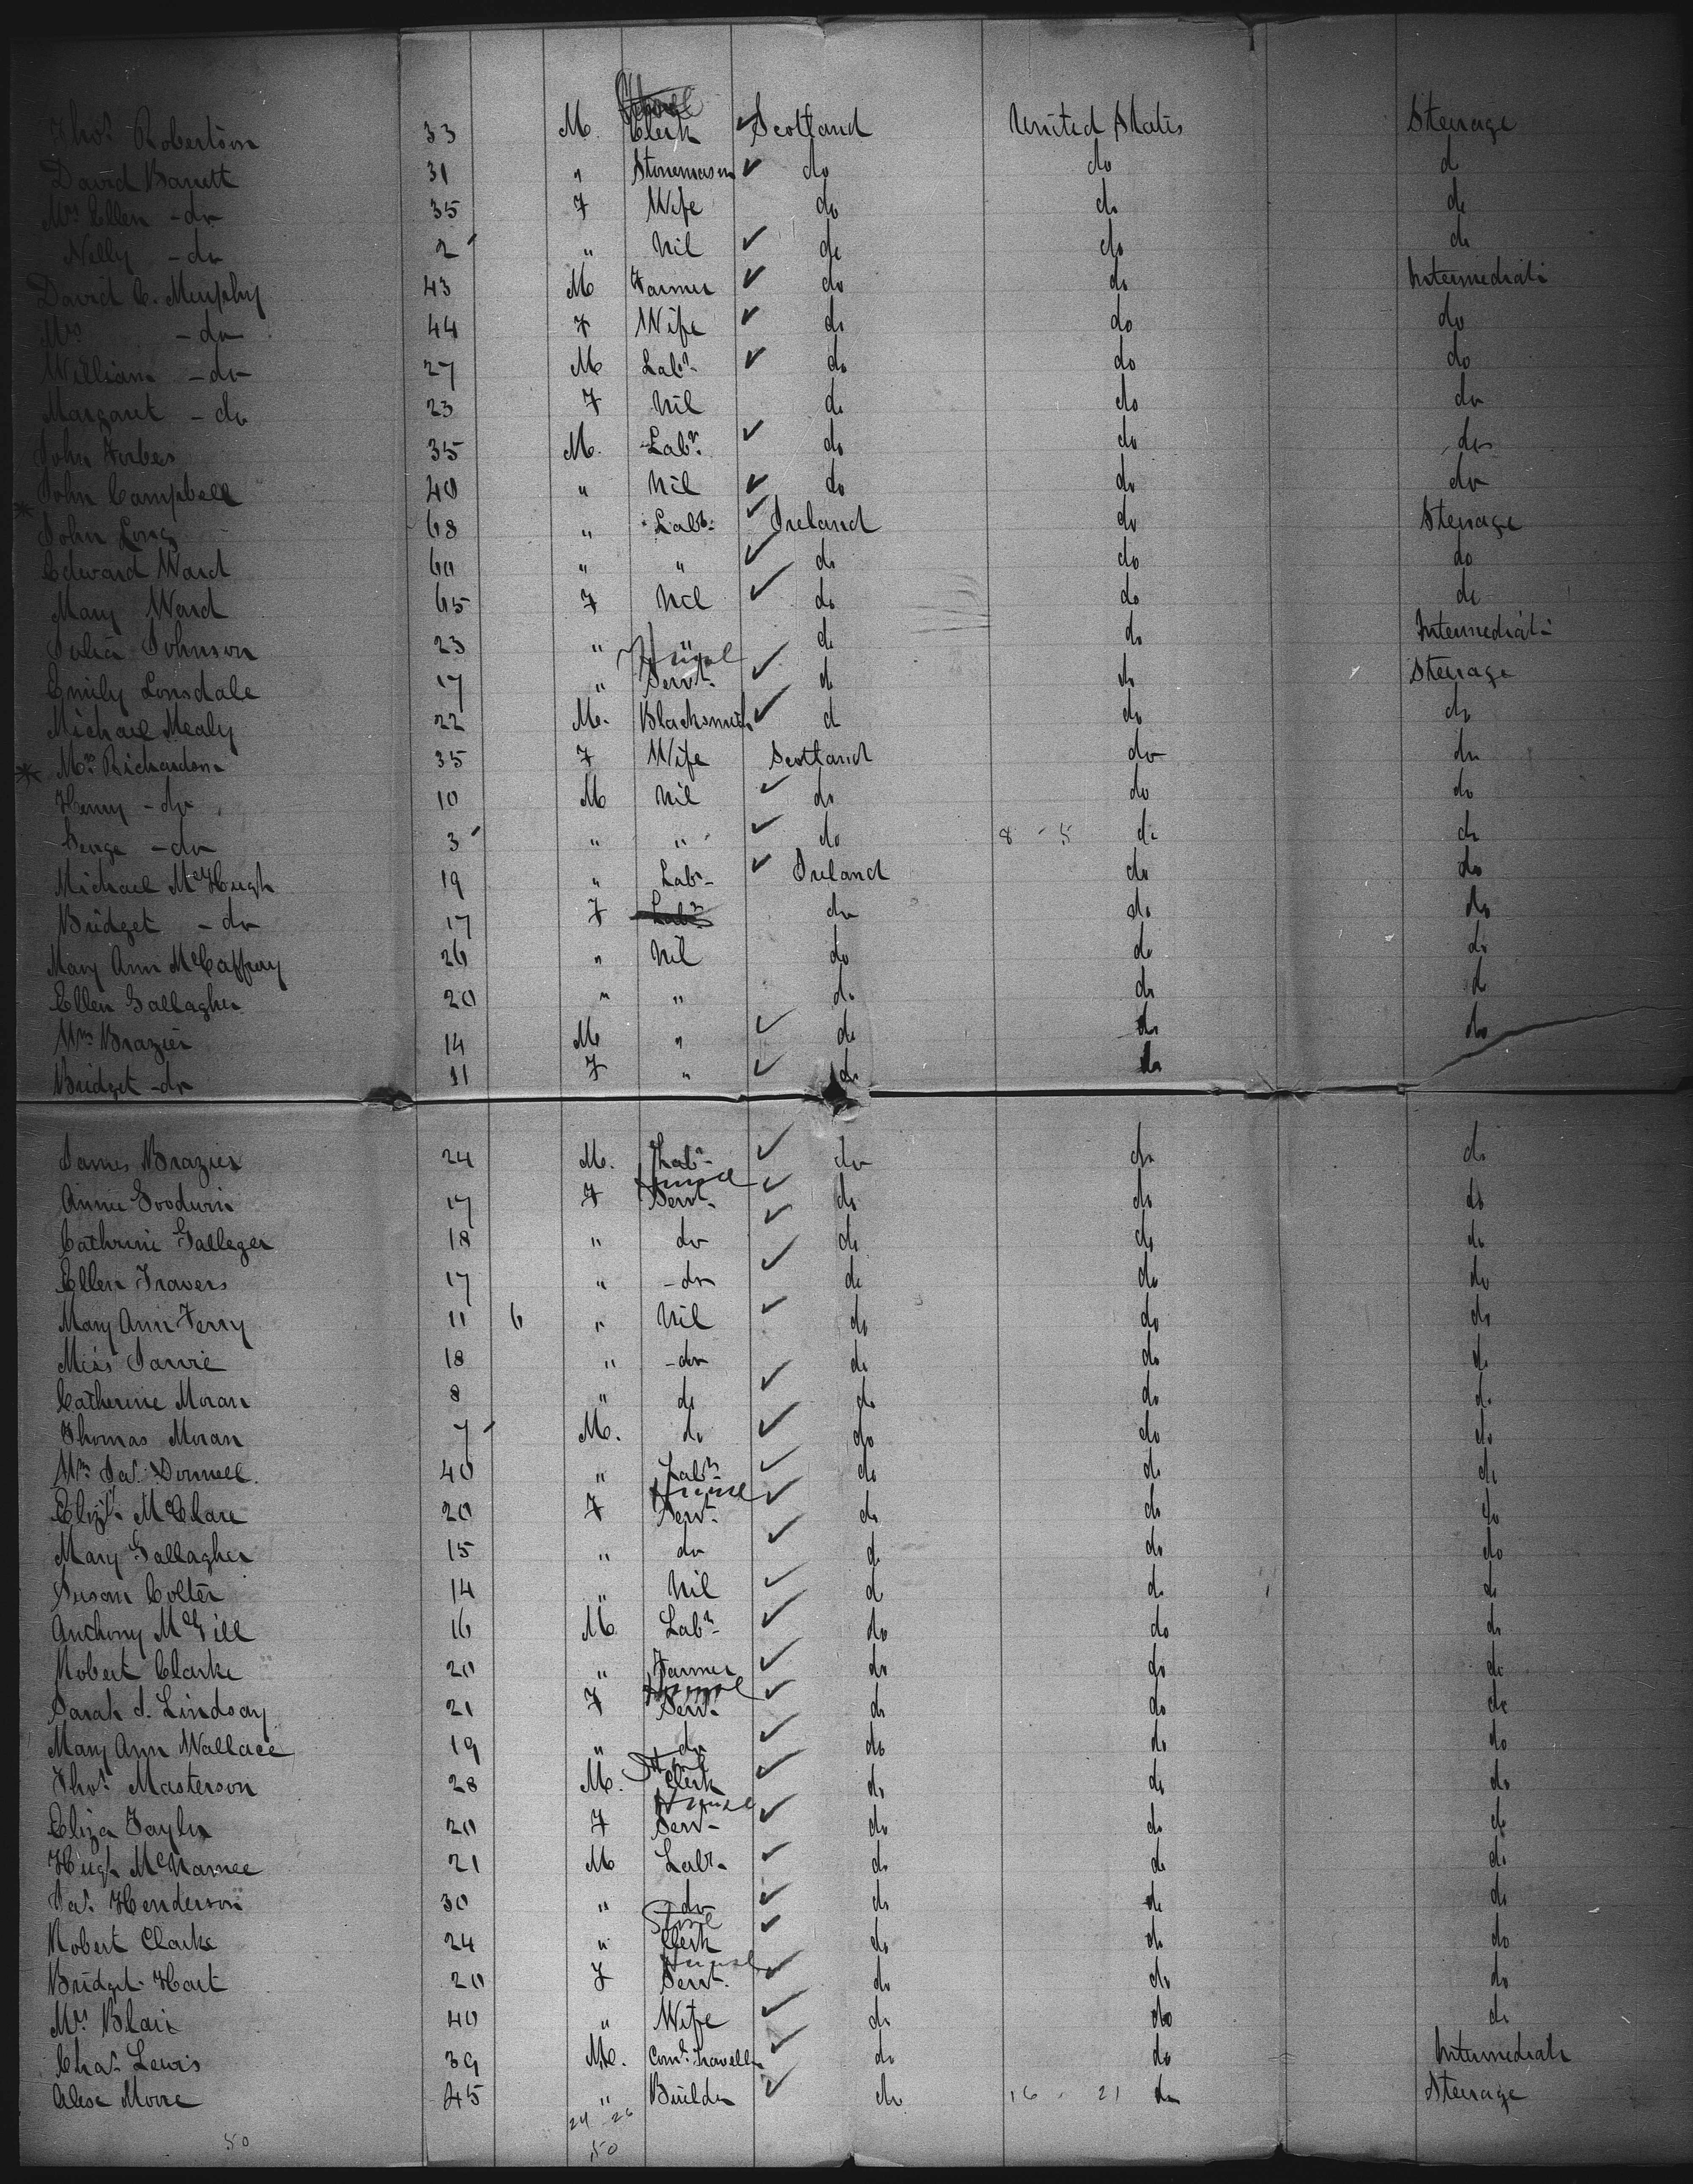 Thos. Robertson 33 M. Clerk ✓ Scotland United States Steerage
David Barrett 31 " Stonemason ✓ do do d
Mrs Ellen - do 35 F Wife do do do
Nelly - do 2 " Nil ✓ do do do
David C. Murphy 43 M Farmer ✓ do do Intermediate
Mrs - do 44 F Wife ✓ do do do
William - do 27 M Labr. ✓ do do do
Margaret - do 23 F Nil do do do
John Forbes 35 M. Labr. ✓ do do do
John Campbell 40 " Nil ✓ do do do
John Long 68 " Labr. ✓ Ireland do Steerage
Edward Ward 60 " " ✓ do do do
Mary Ward 65 F Nil ✓ do do do
Julia Johnson 23 " " do do Intermediate
House
Emily Lonsdale 17 " Servt. ✓ do do Steerage
Michael Mealy 22 M. Blacksmith ✓ d do do
* Mrs. Richardson 35 F Wife Scotland do do
Henry - do 10 M Nil ✓ do do do
George - do 3 " " ✓ do 8 - 5 do do
Michael McHugh 19 " Labr. ✓ Ireland do do
Bridget - do 17 F Labr. do do do
Mary Ann McCaffray 26 " Nil do do do
Ellen Gallagher 20 " " do do do
Wm Brazier 14 M " ✓ do do do
Bridget - do 11 F " ✓ do do
James Brazier 24 M. Labr. ✓ do do do
House
Annie Goodwin 17 F Servt. ✓ do do do
Cathrine Galleger 18 " do ✓ do do do
Ellen Travers 17 " - do ✓ do do do
Mary Ann Ferry 11 6 " Nil ✓ do do do
Miss Jarvie 18 " - do do do do
Catherine Moran 8 " do ✓ do do do
Thomas Moran 7 M. do ✓ do do do
Wm Jas. Donnell. 40 " Labr. ✓ do do do
House
Elizth. McClare 20 F Servt. ✓ do do do
Mary Gallagher 15 " do ✓ do do do
Susan Colter 14 " Nil ✓ do do do
Anthony McGill 16 M Labr. ✓ do do do
Robert Clarke 20 " Farmer ✓ do do do
House
Sarah J. Lindsay 21 F Servt. ✓ do do do
Mary Ann Wallace 19 " do ✓ do do do
Thos. Masterson 28 M. Clerk ✓ do do do
House
Eliza Taylor 20 F Servt. ✓ do do do
Hugh McNamee 21 M Labr. ✓ do do do
Jas. Henderson 30 " do ✓ do do do
Store
Robert Clarke 24 " Clerk ✓ do do do
House
Bridget Hart 20 F Servt. ✓ do do do
Mrs. Blair 40 " Wife ✓ do do do
Chas. Lewis 39 M. Coml. Traveller ✓ do do Intermediate
Alex Moore 45 " Builder ✓ do 16 - 21 do Steerage
24 - 26
50 50